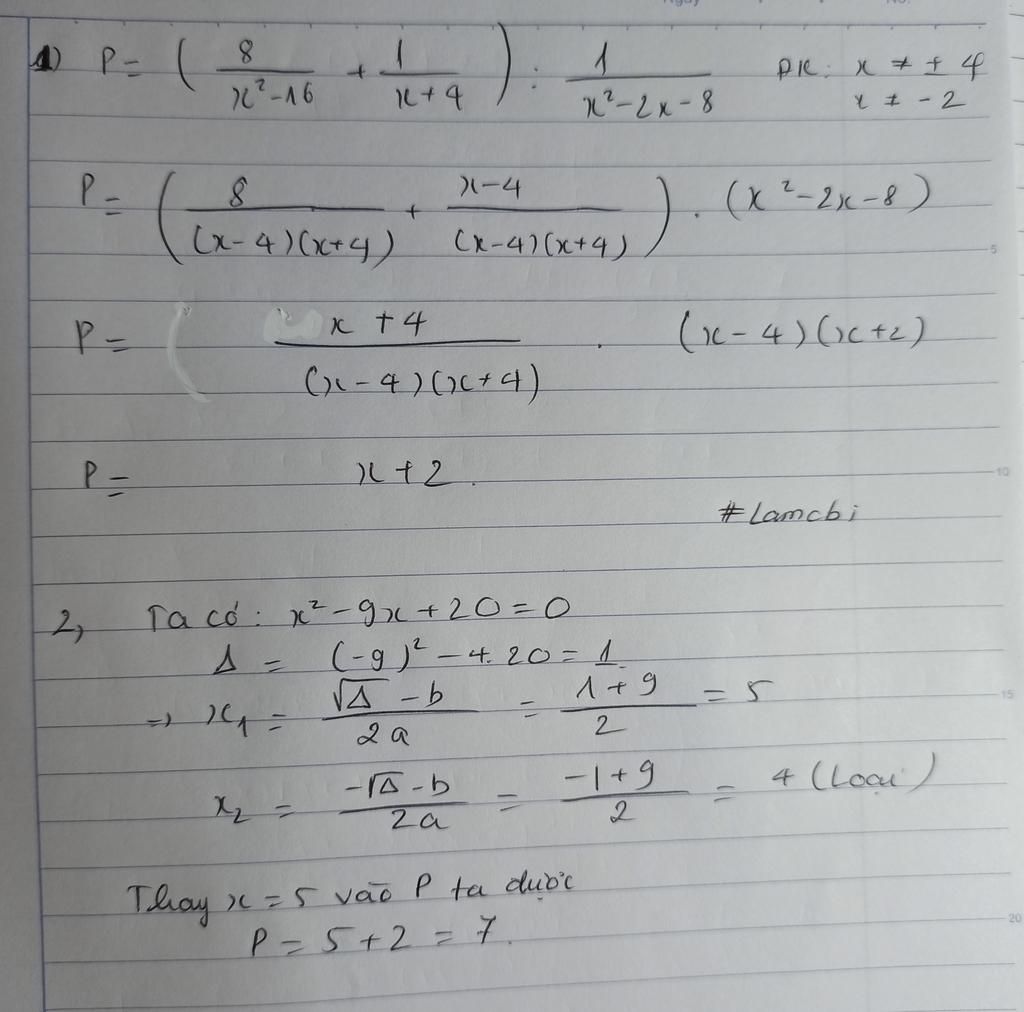 1) P = ( 8/(x²-16) + 1/(x+4) ) : 1/(x²-2x-8) ĐK: x ≠ ± 4
x ≠ -2
P = ( 8/((x-4)(x+4)) + (x-4)/((x-4)(x+4)) ) . (x²-2x-8)
P = (x+4)/((x-4)(x+4)) . (x-4)(x+2)
P = x+2.
#Lamcbi
2, Ta có: x²-9x+20=0
Δ = (-9)² - 4.20 = 1
=> x₁ = (√Δ - b)/2a = (1+9)/2 = 5
x₂ = (-√Δ - b)/2a = (-1+9)/2 = 4 (Loại)
Thay x = 5 vào P ta được
P = 5+2 = 7.
5
10
15
20